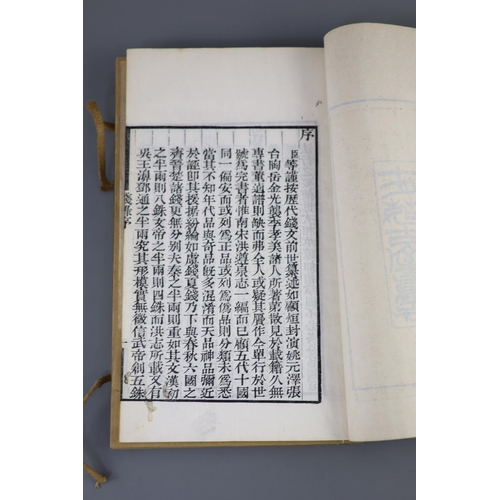 序
臣等謹按歷代錢文前世纂述如顧烜封演姚元澤張
台陶岳金光襲李孝美諸人所著第散見於載籍久無
專書董逌譜則缺而弗全人或疑其贗作今單行於世
號為完書者惟南宋洪遵泉志一編而已顧五代十國
同一偏安而或列為正品或列為偽品則分類未為悉
當其不知年代品與奇品旣多混淆而天品神品彌近
於誕卽其援據紛綸如虞錢夏錢乃下與春秋六國之
齊莒楚諸錢更無分别夫秦之半兩則重如其文漢初
之半兩則八銖文帝之半兩則四銖而洪志所載又有
吳王濞鄧通之半兩究其形模實無徵信武帝刱五銖
錢錄序
一